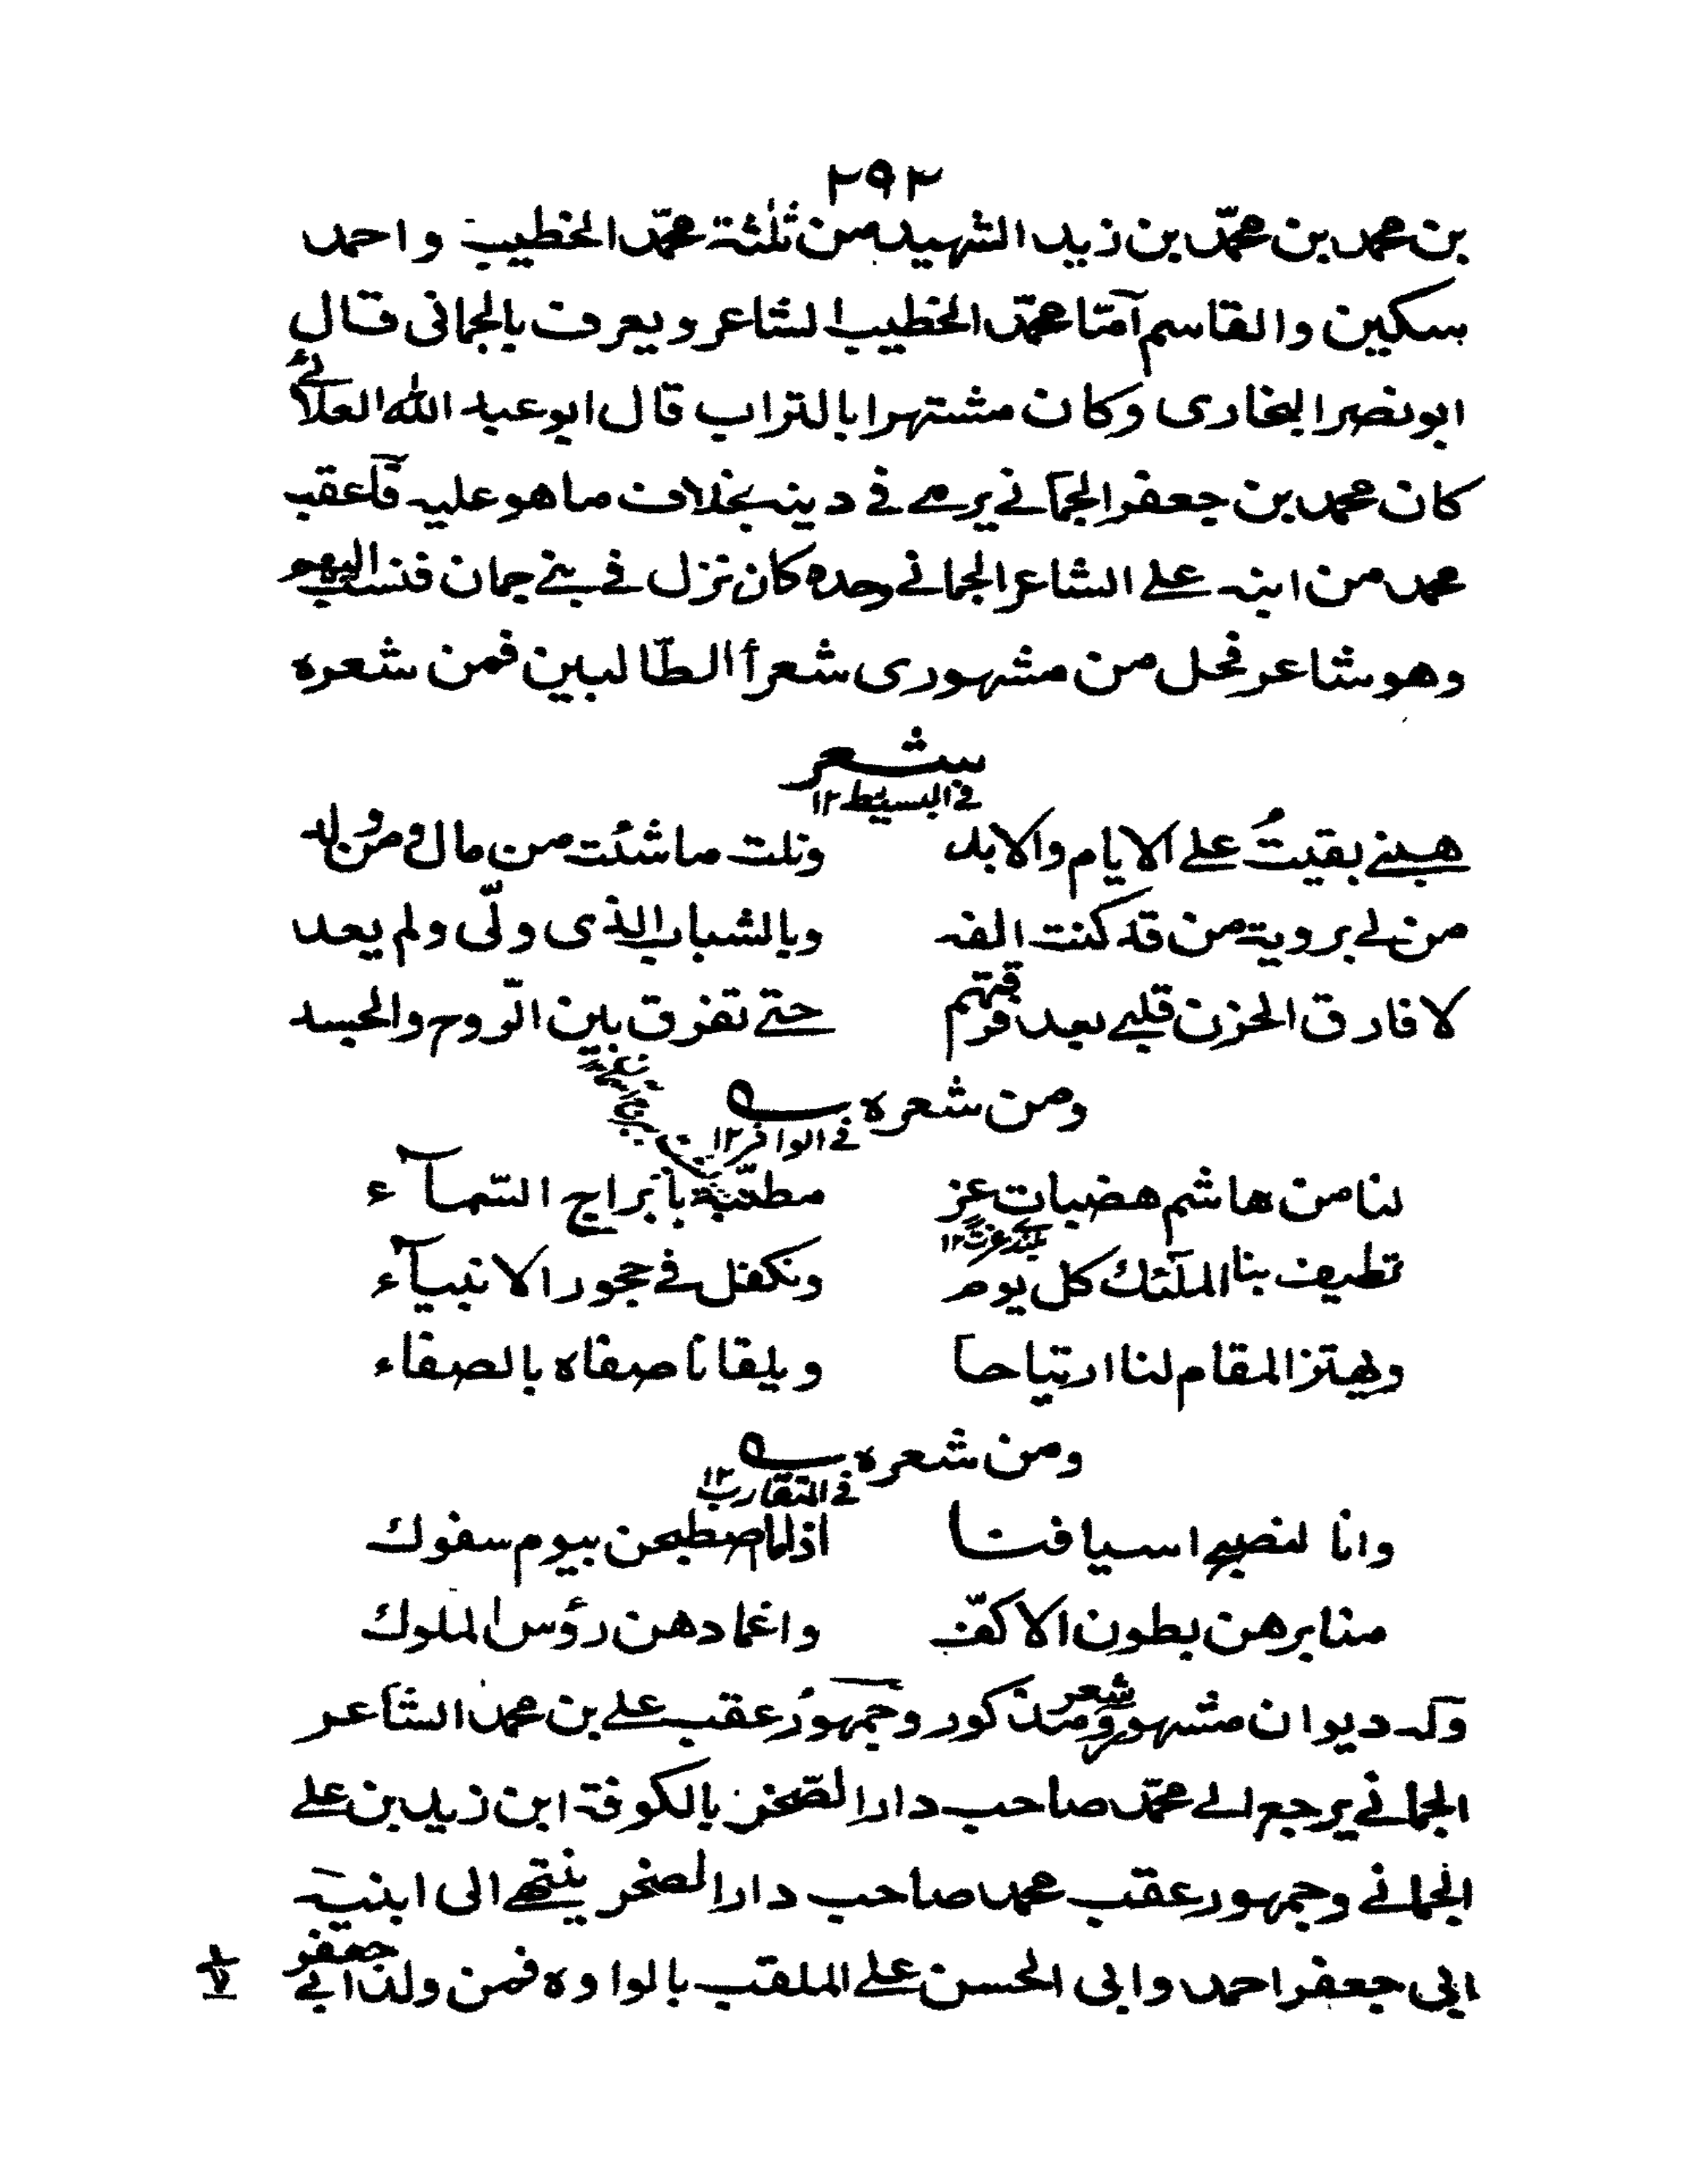 ٢٩٢
بن محمد بن محمّد بن زيد الشهيد من ثلٰثة محمّد الخطيب و احمد
سكين والقاسم آمّا محمّد الخطيب الشاعر ويعرف بالجمانى قال
ابونصر البخارى وكان مشتهرا بالتراب قال ابوعبد الله العلائے
كان محمد بن جعفر الجمانے يرمے فے دينه بخلاف ما هو عليه فآعقب
محمد من ابنه علے الشاعر الجمانے وحده كان نزل فے بنے جمان فنسب اليهم
وهو شاعر فحل من مشهورى شعرأ الطّالبين فمن شعره
شعر
فے البسيط ١٢
هبنے بقيتُ علے الايام والابد ونلت ما شئت من مال ومن ولد
من لے بروية من قد كنت الفه وبالشباب الذى ولّى ولم يعد
لا فارق الحزن قلبے بعد فرقتهم حتے تفرق بين الرّوح والجسد
ومن شعره
فے الوافر ١٢
لنا من هاشم هضبات عز مطنّبة بابراج السّمآء
تطيف بنا الملٓئك كل يوم ونكفل فے حجور الانبيآء
ويهتز المقام لنا ارتياحا ويلقانا صفاه بالصفاء
ومن شعره
فے المتقارب ١٢
وانا لنصبح اسيافنا اذا ما اصطبحن بيوم سفوك
منابرهن بطون الاكفّ واغمادهن رؤس الملوك
وله ديوان مشهور وشعر مذكور وجمهور عقب علے بن محمد الشاعر
الجمانے يرجع الے محمّد صاحب دار الصّخر بالكوفة ابن زيد بن علے
الجمانے وجمهور عقب محمد صاحب دار الصخر ينتهے الى ابنيه
ابى جعفر احمد وابى الحسن علے الملقب بالواوه فمن ولد ابے جعفر